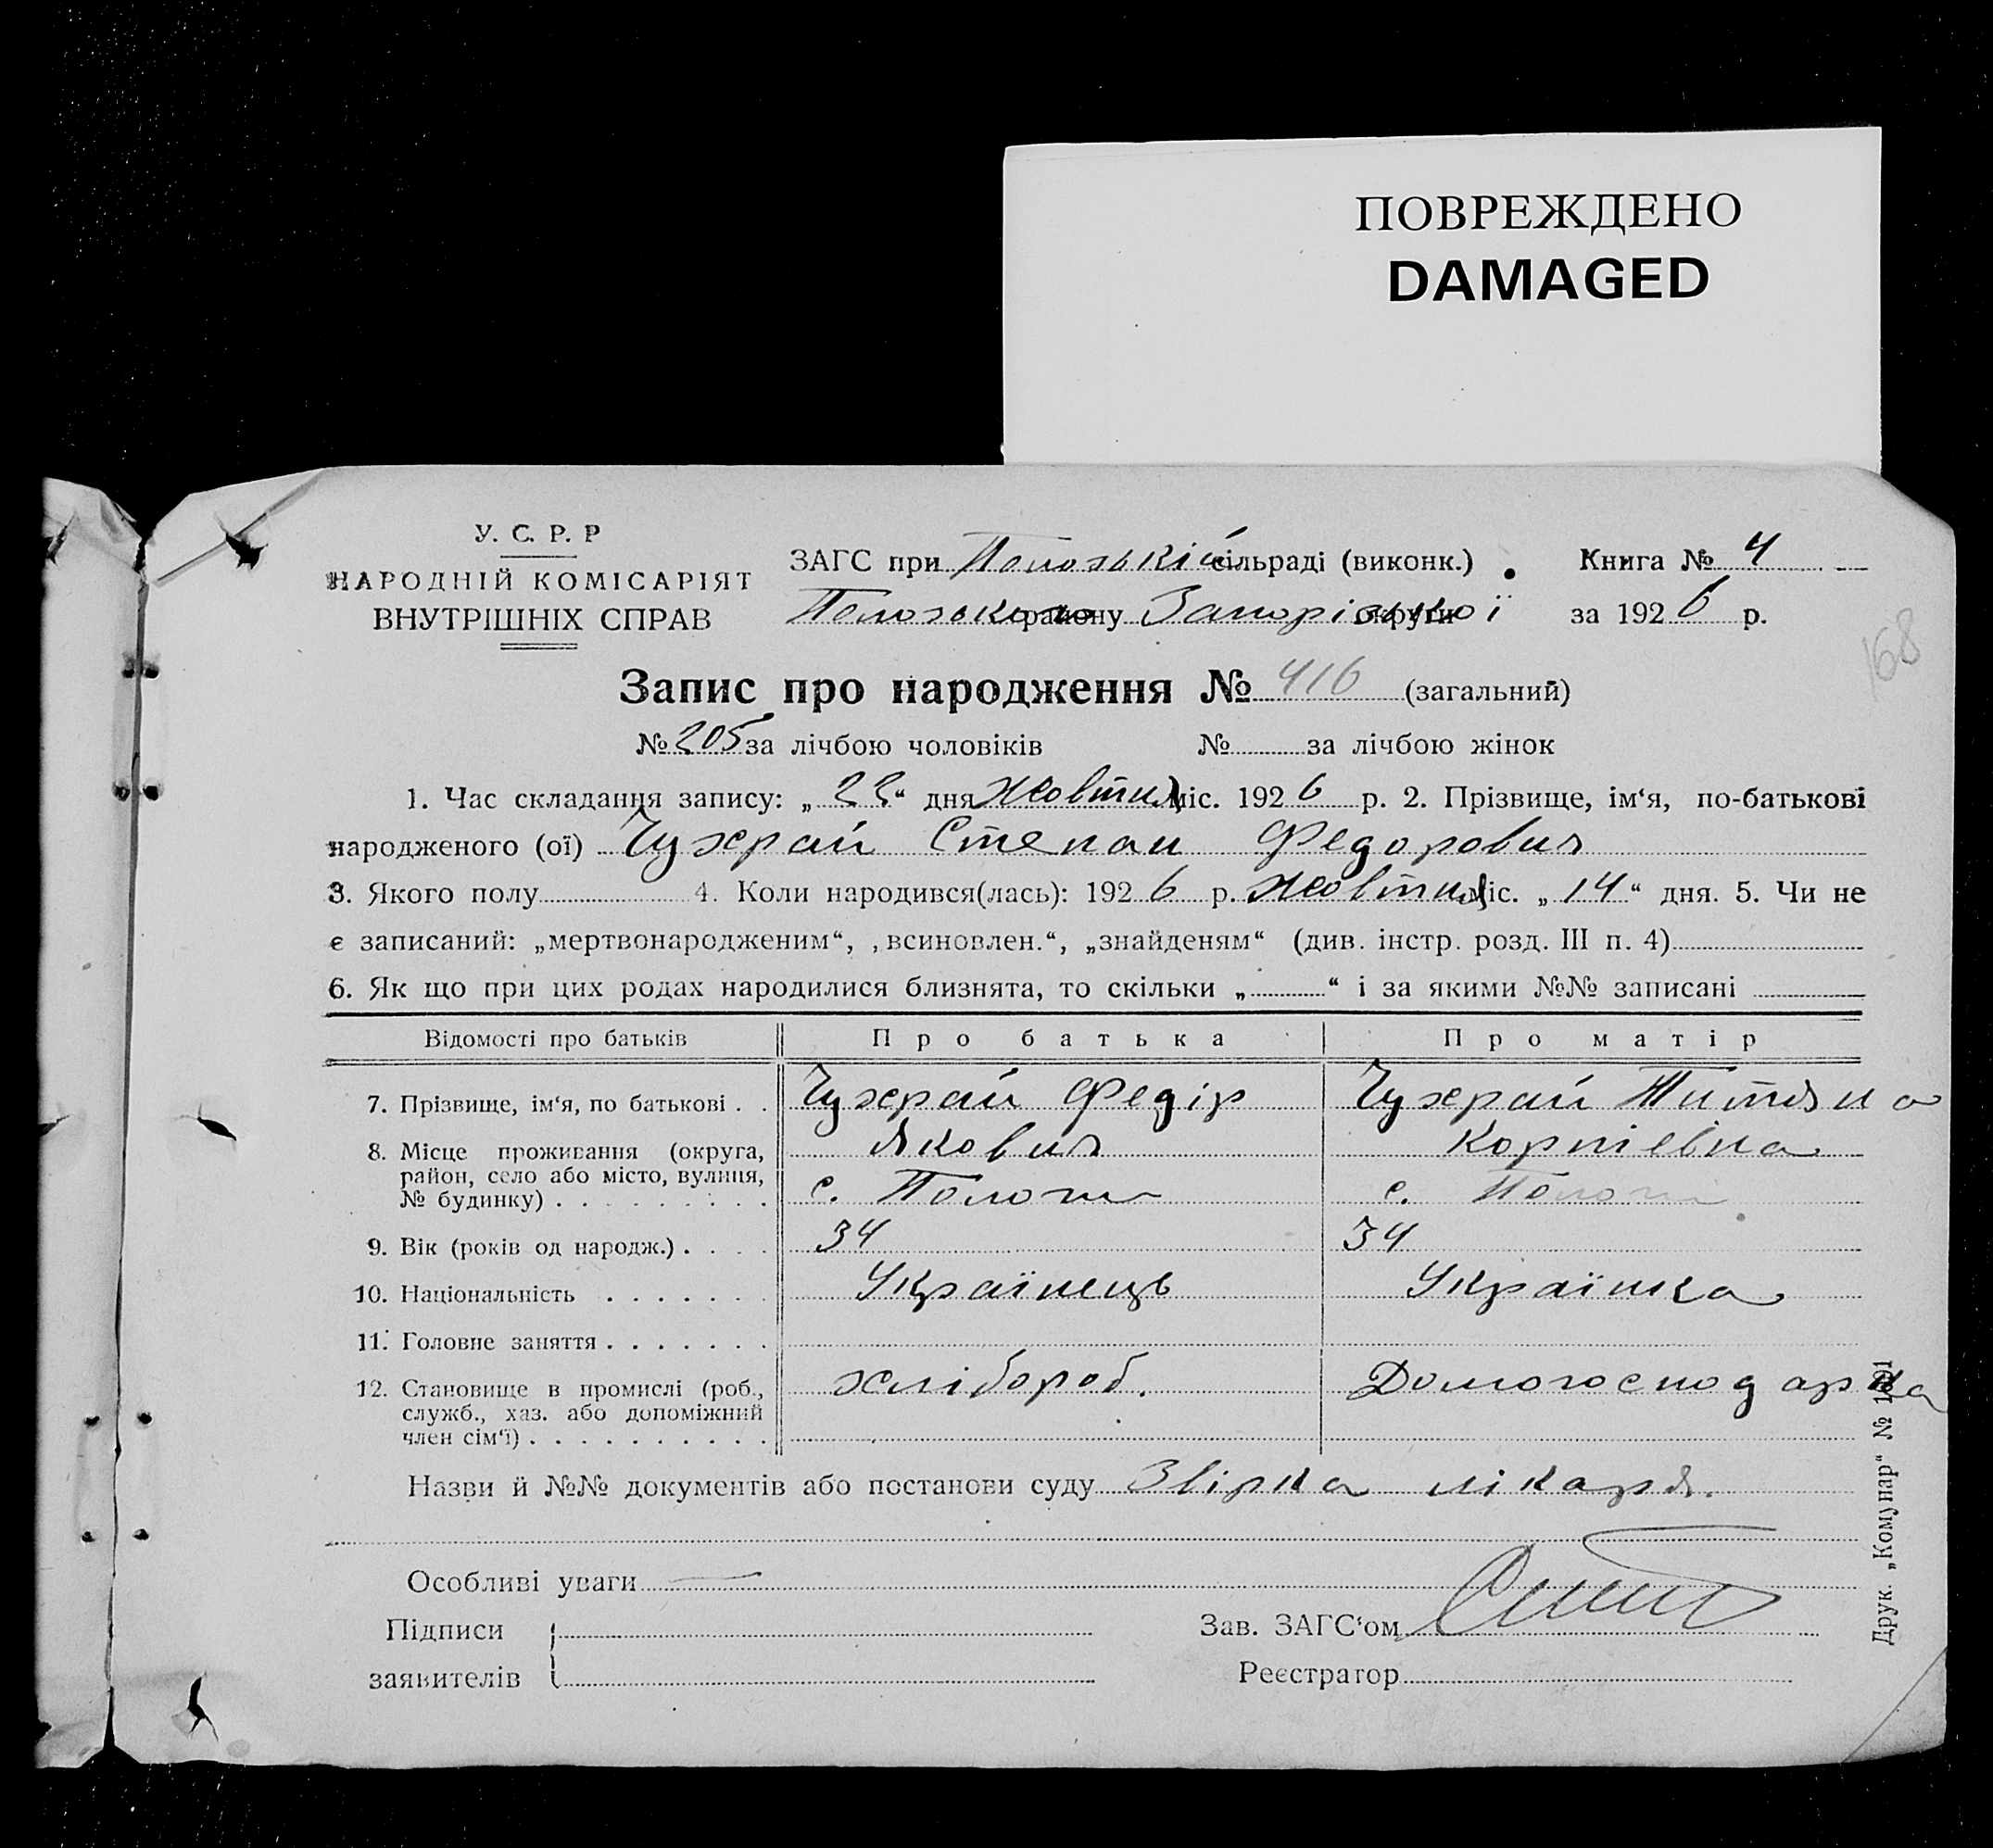 ПОВРЕЖДЕНО
DAMAGED
У. С. Р. Р
НАРОДНІЙ КОМІСАРІЯТ
ВНУТРІШНІХ СПРАВ
ЗАГС при Пологській сільраді (виконк.) Книга № 4
Пологського району Запорізької округи за 1926 р.
168
Запис про народження № 416 (загальний)
№ 205 за лічбою чоловіків № за лічбою жінок
1. Час складання запису: „22“ дня Жовтня міс. 1926 р. 2. Прізвище, ім‘я, по-батькові
народженого (ої) Чухрай Степан Федорович
3. Якого полу 4. Коли народився(лась): 1926 р. Жовтня міс. „14“ дня. 5. Чи не
є записаний: „мертвонародженим“, „всиновлен.“, „знайденям“ (див. інстр. розд. III п. 4)
6. Як що при цих родах народилися близнята, то скільки „ “ і за якими №№ записані
Відомості про батьків Про батька Про матір
7. Прізвище, ім‘я, по батькові . . Чухрай Федір Чухрай Титяна
Якович Корніевна
8. Місце проживання (округа,
район, село або місто, вулиця,
№ будинку) . . . . . . . . . с. Пологи с. Пологи
9. Вік (років од народж.) . . . . 34 34
10. Національність . . . . . . . Українець Українка
11. Головне заняття . . . . . . .
12. Становище в промислі (роб., хлібороб. Домогосподарка
служб., хаз. або допоміжний
член сім‘ї) . . . . . . . . . .
Назви й №№ документів або постанови суду Звірка лікаря.
Особливі уваги —
Підписи
заявителів
Зав. ЗАГС‘ом
Реєстратор
Друк. „Комунар“ № 1891